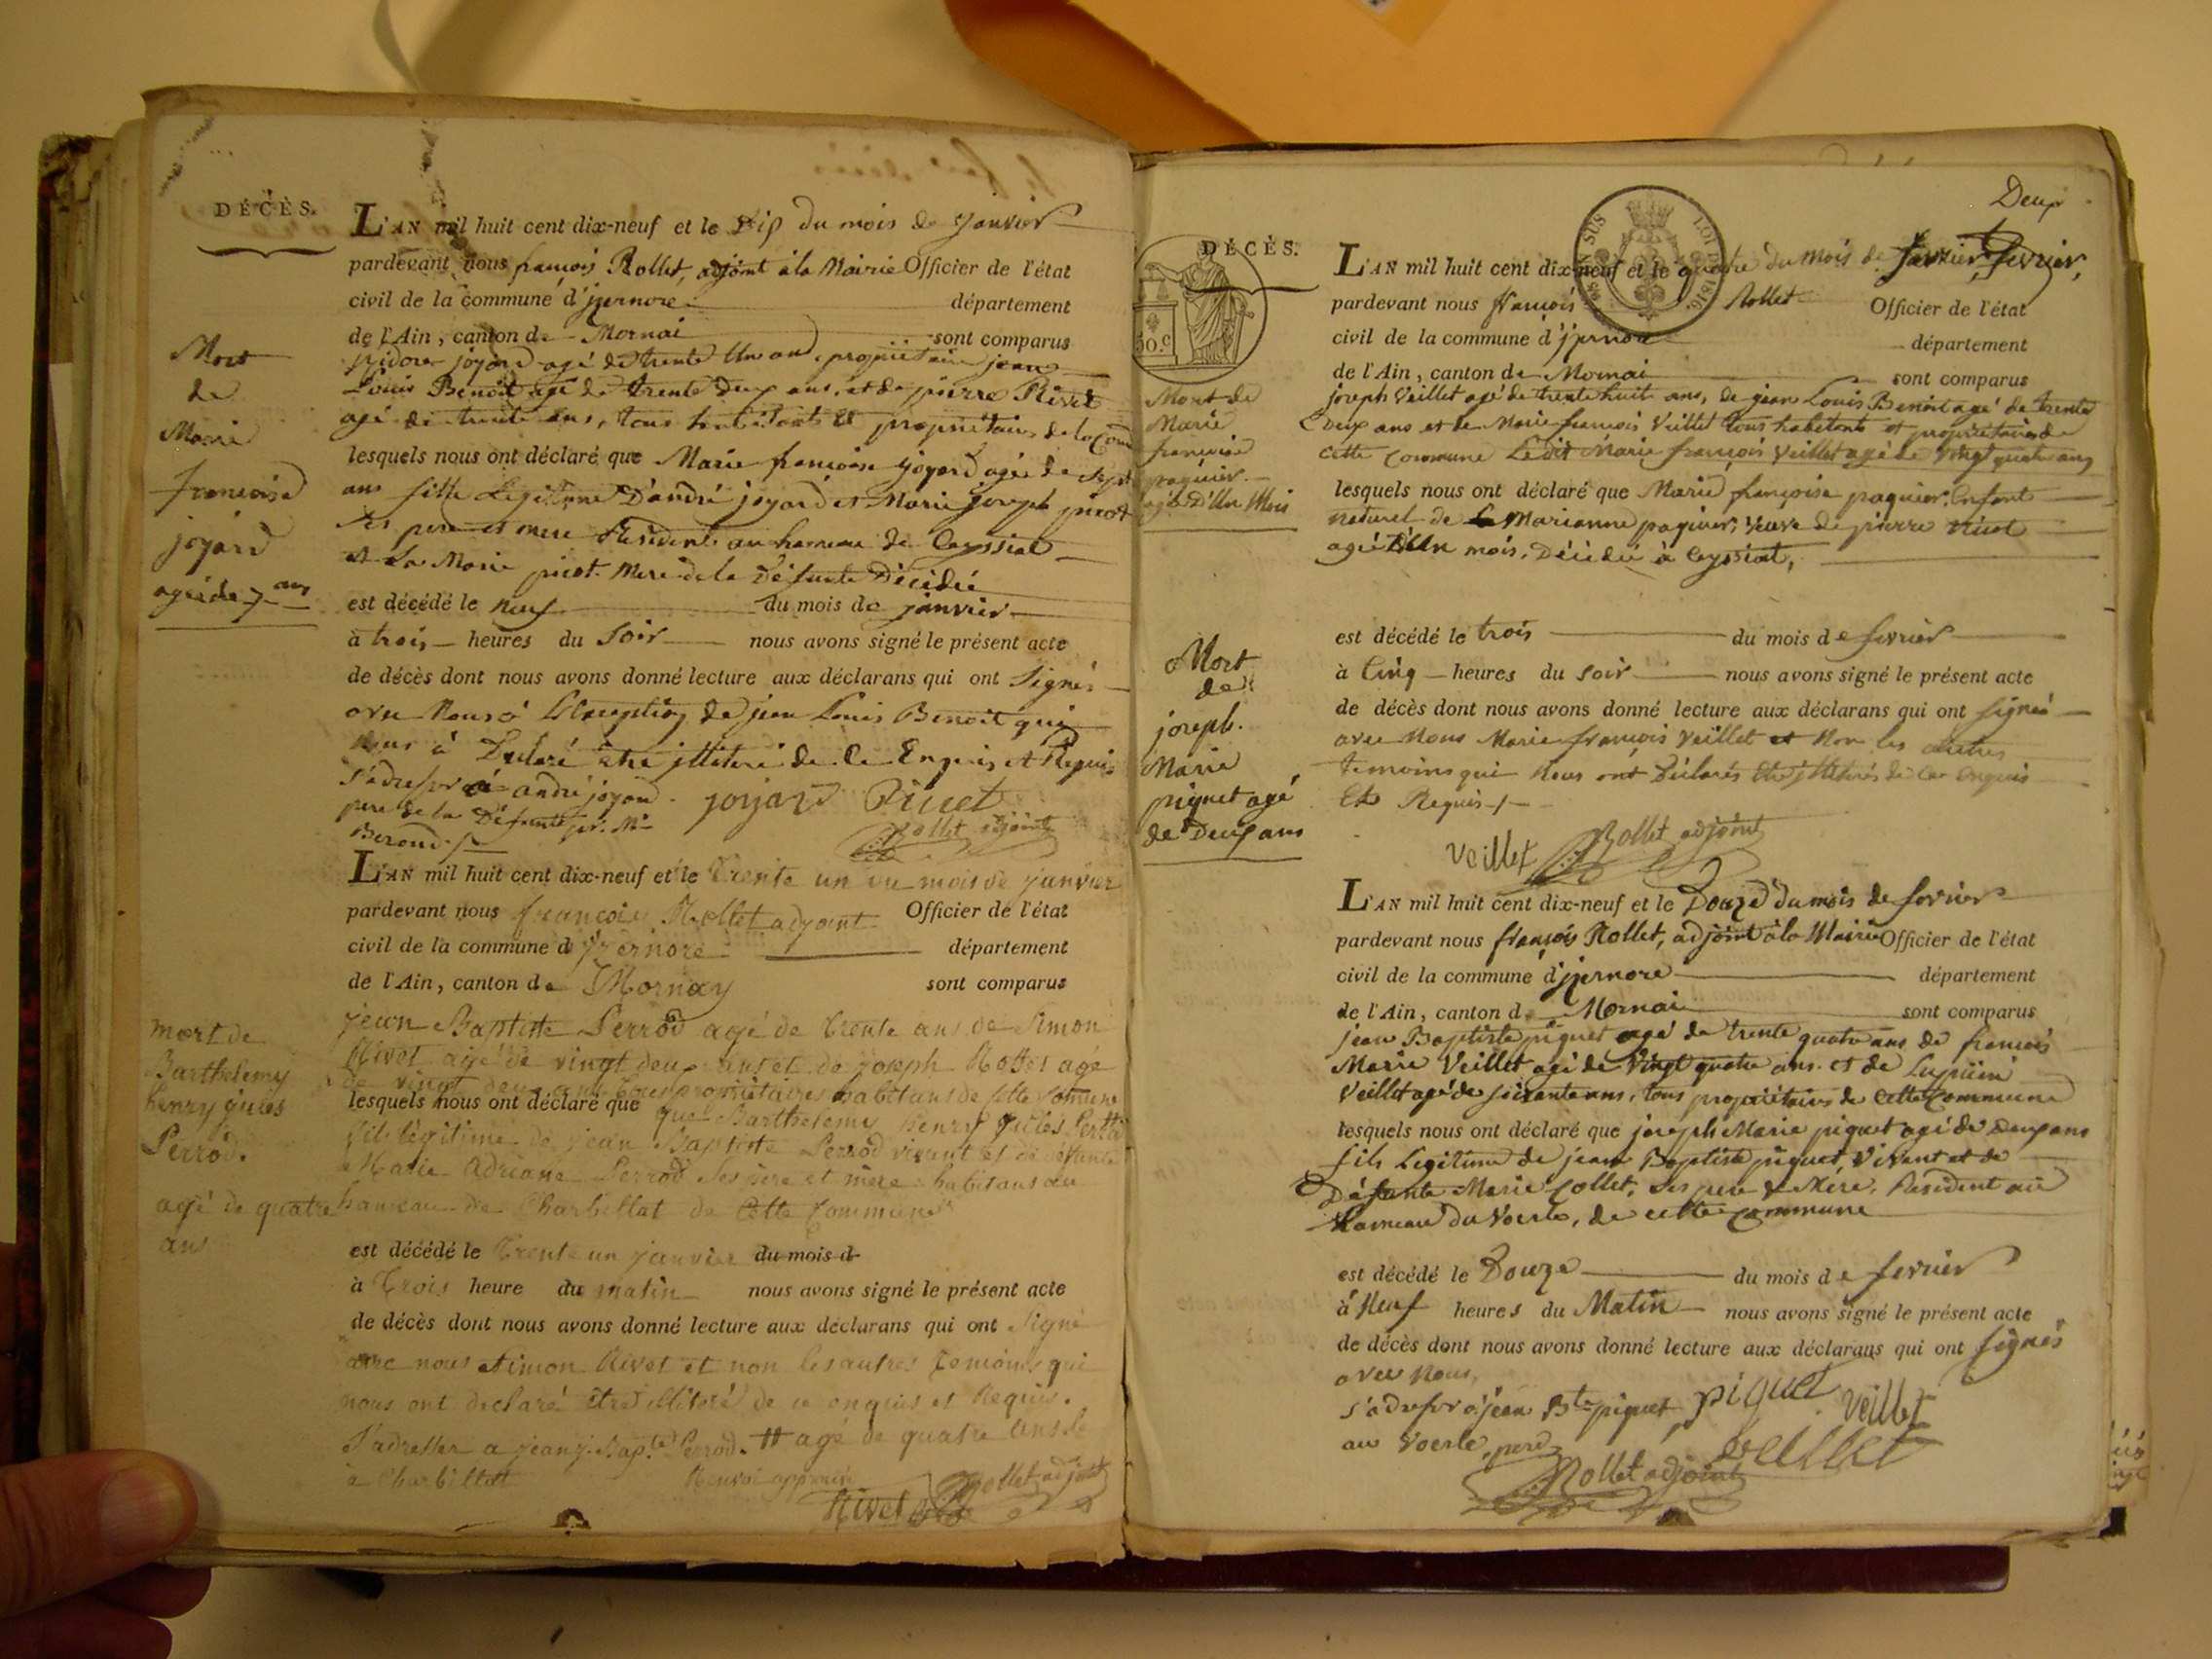 DÉCÈS.
L'AN mil huit cent dix-neuf et le dix du mois de janvier
pardevant nous françois Rollet, adjoint à la Mairie Officier de l'état
civil de la commune d'jzernore département
de l'Ain, canton de Mornai sont comparus
jzidore joyard agé de trente Un ans, propriétaire jean
Louis Benoit agé de trente deux ans, et de pierre Rivet
agé de trente ans, tous habitants et propriétaires de la Com
lesquels nous ont déclaré que Marie françoise joyard agée de sept
ans fille Légitime D'andré joyard et Marie joseph picot
ses pere et mere Résidents au hameau de Ceyssiat
et La Marie picot Mere de la Défunte Décédée
est décédé le neuf du mois de janvier
à trois heures du Soir nous avons signé le présent acte
de décès dont nous avons donné lecture aux déclarans qui ont Signés
avec Nous à L'Exception de jean Louis Benoit qui
Nous à Déclaré être illitéré de Ce Enquis et Requis
s'adresser à andré joyard
pere de la Défunte pr. Mr
Beroud
joyard Rivet
Rollet adjoint
Mort
de
Marie
françoise
joyard
agée de 7 ans
L'AN mil huit cent dix-neuf et le Trente un du mois de janvier
pardevant nous françois Rollet adjoint Officier de l'état
civil de la commune d'jzernore département
de l'Ain, canton de Mornay sont comparus
jean Baptiste Perrod agé de trente ans de Simon
Rivet agé de vingt deux ans et de joseph Rollet agé
de vingt deux ans tous propriétaires habitans de cette comune
lesquels nous ont déclaré que
que Barthelemy henry jules
fils légitime de jean Baptiste Perrod vivant et de défunte
Marie Adriane Perrod ses père et mère habitans au
hameau de Charbillat de Cette Commune
est décédé le Trente un janvier du mois d
à Trois heure du matin nous avons signé le présent acte
de décès dont nous avons donné lecture aux déclarans qui ont Signé
avec nous Simon Rivet et non les autres temoins qui
nous ont declaré être illitéré de ce enquis et Requis.
S'adresser a jean Bapte Perrod. # agé de quatre ans
à Charbillat Renvoi approuvé
Rivet Rollet adjoint
mort de
Barthelemy
henry jules
Perrod.
agé de quatre
ans
Deux
DÉCÈS.
50.c
L'AN mil huit cent dix-neuf et le quatre du mois de janvier, fevrier,
pardevant nous françois Rollet Officier de l'état
civil de la commune d'jzernore département
de l'Ain, canton de Mornai sont comparus
joseph Veillet agé de trente huit ans, de jean Louis Benoit agé de trente
Deux ans et de Marie françois Veillet tous habitants et propriétaires de
cette Commune Ledit Marie françois Veillet agé de Vingt quatre ans
lesquels nous ont déclaré que Marie françoise paquier, Enfant
naturel de Marianne paquier, Veuve de pierre
agée D'Un mois, Décédée à Ceyssiat,
est décédé le trois du mois de fevrier
à Cinq heures du soir nous avons signé le présent acte
de décès dont nous avons donné lecture aux déclarans qui ont signé
avec Nous Marie françois Veillet et Non les autres
temoins qui Nous ont Déclarés Etre illitérés de Ce Enquis
Et Requis
Veillet Rollet adjoint
Mort de
Marie
françoise
paquier
agée D'Un Mois
L'AN mil huit cent dix-neuf et le Douze du mois de fevrier
pardevant nous françois Rollet, adjoint à la Mairie Officier de l'état
civil de la commune d'jzernore département
de l'Ain, canton de Mornai sont comparus
jean Baptiste piquet agé de trente quatre ans de françois
Marie Veillet agé de Vingt quatre ans et de Lupicin
Veillet agé de soixante ans, tous propriétaires de Cette Commune
lesquels nous ont déclaré que joseph Marie piquet agé de Deux ans
fils Legitime de jean Baptiste piquet, Vivant et de
Défunte Marie Collet, ses pere & Mere, Résident au
hameau du Voerle, de cette Commune
est décédé le Douze du mois de fevrier
à Neuf heures du Matin nous avons signé le présent acte
de décès dont nous avons donné lecture aux déclarans qui ont Signés
avec Nous,
s'adresser à jean Bte piquet piquet Veillet
au Voerle, pere Veillet
Rollet adjoint
Mort
de
joseph.
Marie
piquet agé
de Deux ans